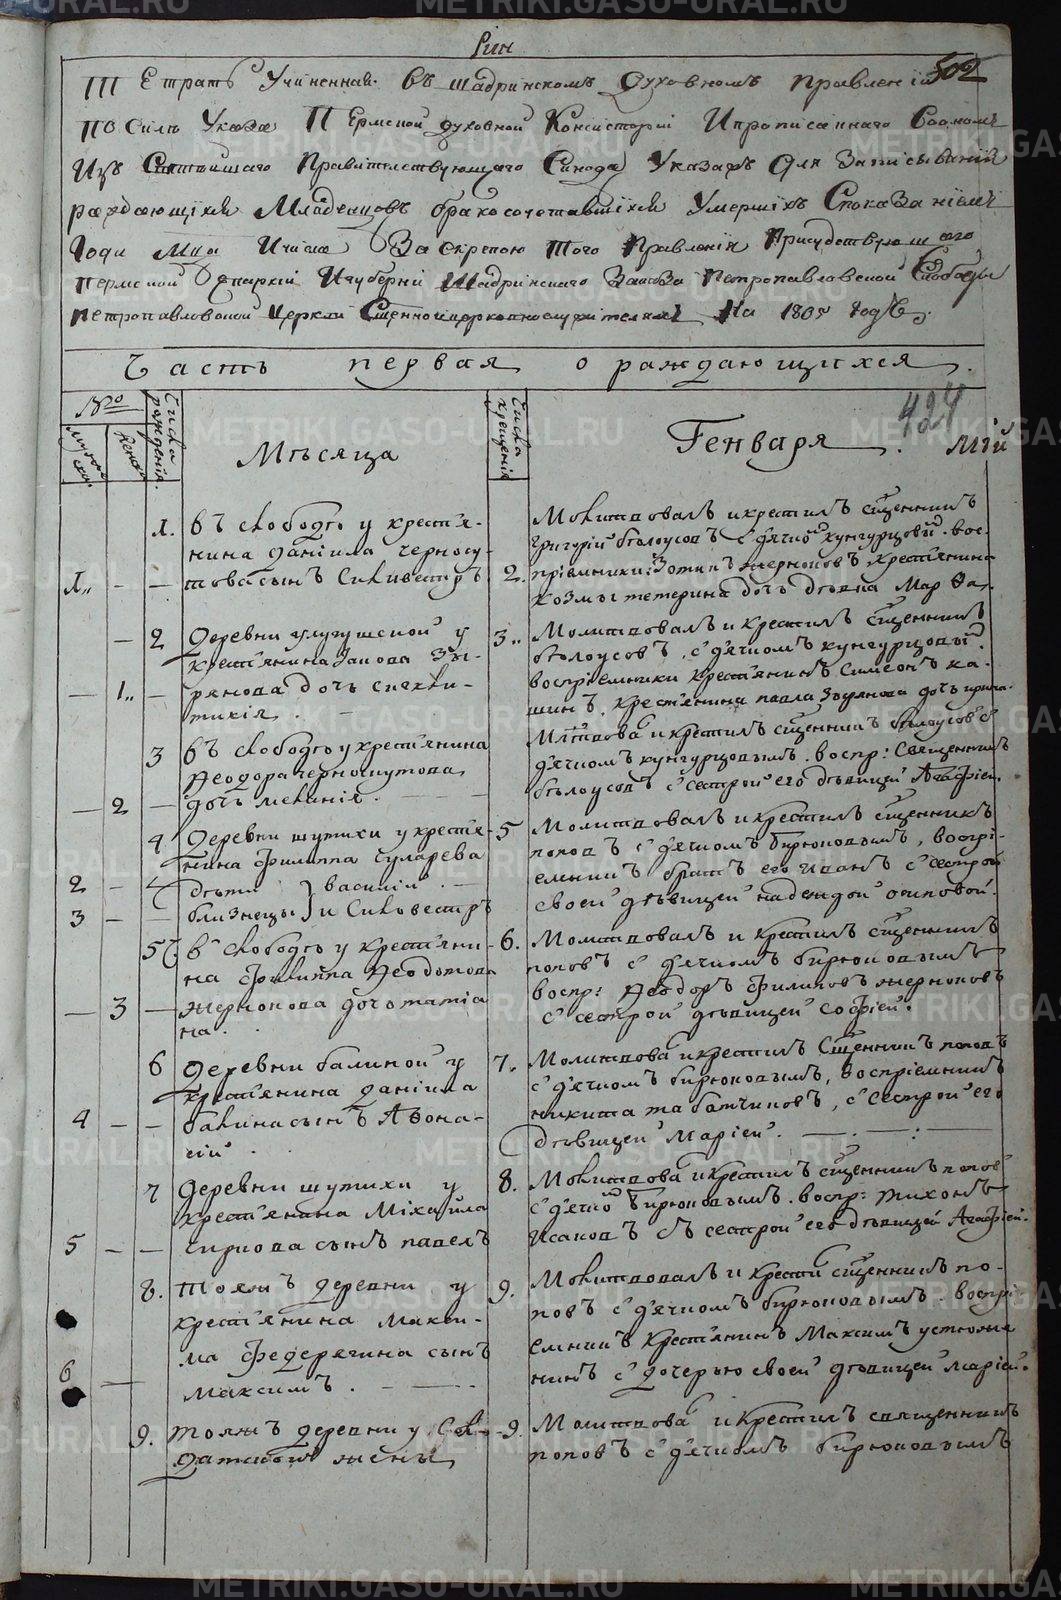 Рин
502
Тетрать Учиненная въ шадринскомъ духовномъ правленіи
По Силѣ Указа Пермской духовной Консисторіи И прописаннаго Воономъ
Изъ Святѣйшаго Правительствующаго Синода Указахъ Для Записываній
раждающихся Младенцовъ бракосочетавшихся Умершихъ Споказаніемъ
Годи Мца И числа За скрепою того Правленія Присудствующаго
Пермской Епархіи Игуберніи Шадринскаго Заказа Петропавловской Слободы
петропавловской церкви Сщенноицерковнослужителямъ На 1805 годъ.
Часть первая о раждающихся.
№
мужска
женска
Числа рожденія.
Мѣсяца
Числа крещенія
Генваря.
424
мій
1. въ слободѣ у крестья-
нина даніила черноску-
1,, това сынъ Сильвестръ
2.
Молитвовалъ икрестилъ сщенникъ
григорій бѣлоусовъ с дьячко кунгурцовы. вос-
пріемники: Зотикъ жернаковъ крестьянина
козмы тетерина дочь дѣвица Марѳа.
2 Деревни
крестьянина Іакова Зы-
1,, рянова дочь синкли-
тикія.
3,,
Молитвовалъ и крестилъ сщенникъ
бѣлоусовъ, с дьячкомъ кунгурцовы.
воспріемники крестьянинъ Симеонъ ка-
шинъ, крестьянина павла Зырянова дочь
3 въ слободѣ у крестьянина
Ѳеодора черноскутова
2 дочь меланія.
Млтвова икрестилъ сщенникъ бѣлоусов с
дьячкомъ кунгурцовымъ. воспр: Священникъ
бѣлоусовъ с сестрой его дѣвицей Агафіей.
4 Деревни шутихи у крестья-
нина филиппа
2 дѣти } василій.
3 близнецы } и Сильвестръ
5
Молитвовалъ икрестилъ сщенникъ
поповъ с дьячкомъ бирюковымъ, воспрі-
емникъ братъ его иванъ с сестрой
своей дѣвицей надеждой осиповой.
5 въ слободѣ у крестьяни-
на филиппа Ѳеодотова
3 жернокова дочь татіа
на.
6.
Молитвовалъ и крестилъ сщенникъ
поповъ с дьячкомъ бирюковымъ
воспр: Ѳеодоръ филиповъ жерноковъ
с сестрой дѣвицей Софіей.
6 Деревни балиной у
крестьянина даніила
4 балина сынъ Аѳона-
сій.
7.
Молитвова икрестилъ Сщенникъ поповъ
с дьячкомъ бирюковымъ, Воспріемникъ
никита табатчиковъ, с сестрой его
дѣвицей Маріей.
7 Деревни шутихи у
крестьянина Міхаила
5 сынъ павелъ
8.
Молитвова икрестилъ сщенникъ попов
с дьячко Бирюковымъ. воспр: тихонъ
Исаковъ съ сестрой его дѣвицей Агафіей.
8. Тояжъ деревни у
крестьянина Макси-
ма федерягина сынъ
6 Максимъ.
9.
Молитвовалъ и крести сщенникъ по-
повъ с дьячкомъ бирюковымъ. воспрі-
емникъ крестьянинъ Максимъ устюжа
нинъ с дочерью своей дѣвицей Маріей.
9. тояжъ деревни у Сол-
датской жены
9.
Молитвова и крестилъ священникъ
поповъ с дьячкомъ бирюковымъ